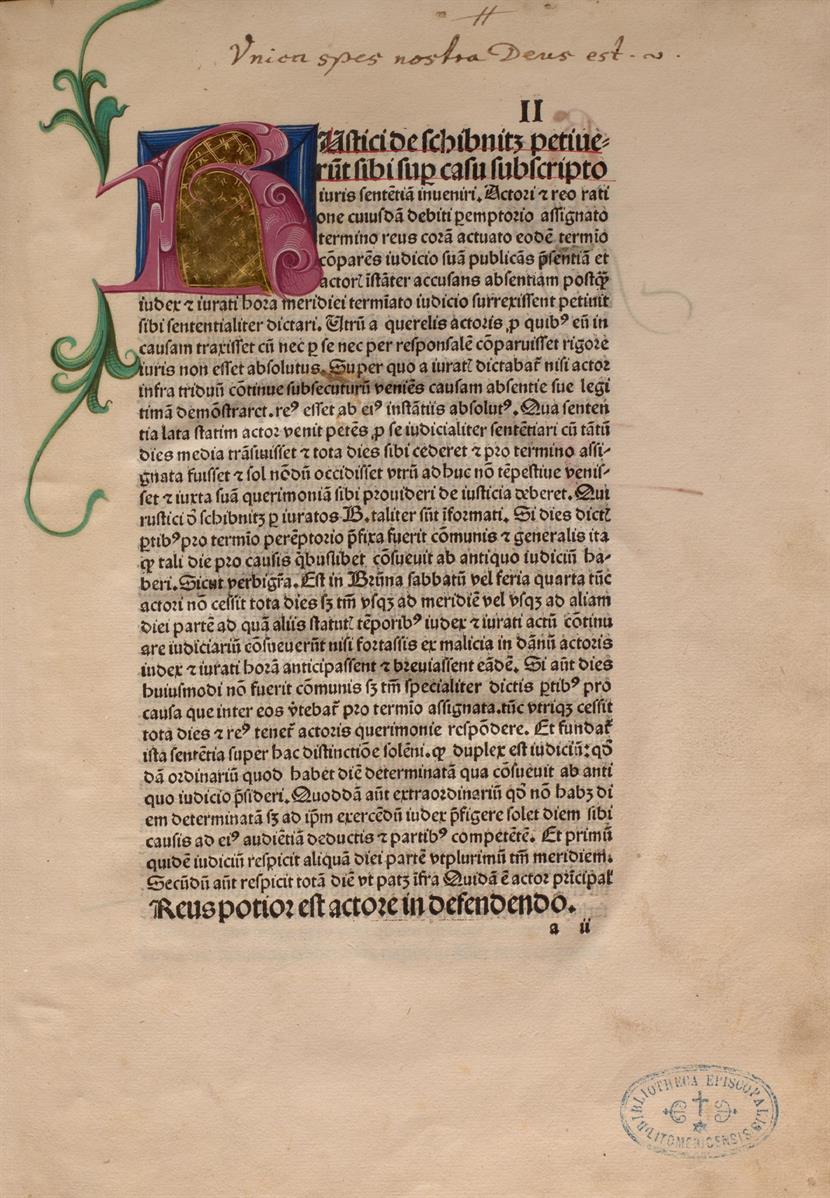 Vnica spes nostra Deus est.
II
RUstici de schibnitz petiue-
rūt sibi sup casu subscripto
iuris sentētiā inueniri. Actori ⁊ reo rati
one cuiusdā debiti ꝑemptorio assignato
termino reus corā actuato eodē termīo
cōparēs iudicio suā publicās p̄sentiā et
actorꝭ īstāter accusans absentiam postꝙ̄
iudex ⁊ iurati hora meridiei termīato iudicio surrexissent petiuit
sibi sententialiter dictari. Utrū a querelis actoris ꝓ quibꝰ eū in
causam traxisset cū nec ꝑ se nec per responsalē cōparuisset rigore
iuris non esset absolutus. Super quo a iuratꝭ dictabat̄ nisi actor
infra triduū cōtinue subsecuturū veniēs causam absentie sue legi
timā demōstraret. reꝰ esset ab eiꝰ instātiis absolutꝰ. Qua senten
tia lata statim actor venit petēs ꝓ se iudicialiter sentētiari cū tātū
dies media trāsiuisset ⁊ tota dies sibi cederet ⁊ pro termino assi-
gnata fuisset ⁊ sol nōdū occidisset vtrū adhuc nō tēpestiue venis-
set ⁊ iuxta suā querimoniā sibi prouideri de iusticia deberet. Qui
rustici ō schibnitz ꝑ iuratos B. taliter sūt īformati. Si dies dictꝭ
ꝑtibꝰ pro termīo perēptorio p̄fixa fuerit cōmunis ⁊ generalis ita
ꝙ tali die pro causis q̄buslibet cōsueuit ab antiquo iudiciū ha-
beri. Sicut verbigr̄a. Est in Brūna sabbatū vel feria quarta tūc
actori nō cessit tota dies sꝫ tm̄ vsqꝫ ad meridiē vel vsqꝫ ad aliam
diei partē ad quā aliis statutꝭ tēporibꝰ iudex ⁊ iurati actū cōtinu
are iudiciariū cōsueuerūt nisi fortassis ex malicia in dānū actoris
iudex ⁊ iurati horā anticipassent ⁊ breuiassent eādē. Si aūt dies
huiusmodi nō fuerit cōmunis sꝫ tm̄ specialiter dictis ꝑtibꝰ pro
causa que inter eos v̓tebat̄ pro termīo assignata. tūc vtriqꝫ cessit
tota dies ⁊ reꝰ tenet̄ actoris querimonie respōdere. Et fundat̄
ista sentētia super hac distinctiōe solēni. ꝙ duplex est iudiciū: qd̄
dā ordinariū quod habet diē determinatā qua cōsueuit ab anti
quo iudicio p̄sideri. Quoddā aūt extraordinariū qd̄ nō habꝫ di
em determinatā sꝫ ad ip̄m exercēdū iudex p̄figere solet diem sibi
causis ad eiꝰ audiētiā deductis ⁊ partibꝰ competētē. Et primū
quidē iudiciū respicit aliquā diei partē vtplurimū tm̄ meridiem.
Secūdū aūt respicit totā diē vt patꝫ īfra Quidā ē actor prīcipal̄
Reus potior est actore in defendendo.
a ii
BIBLIOTHECA EPISCOPALIS
LITOMERICENSIS